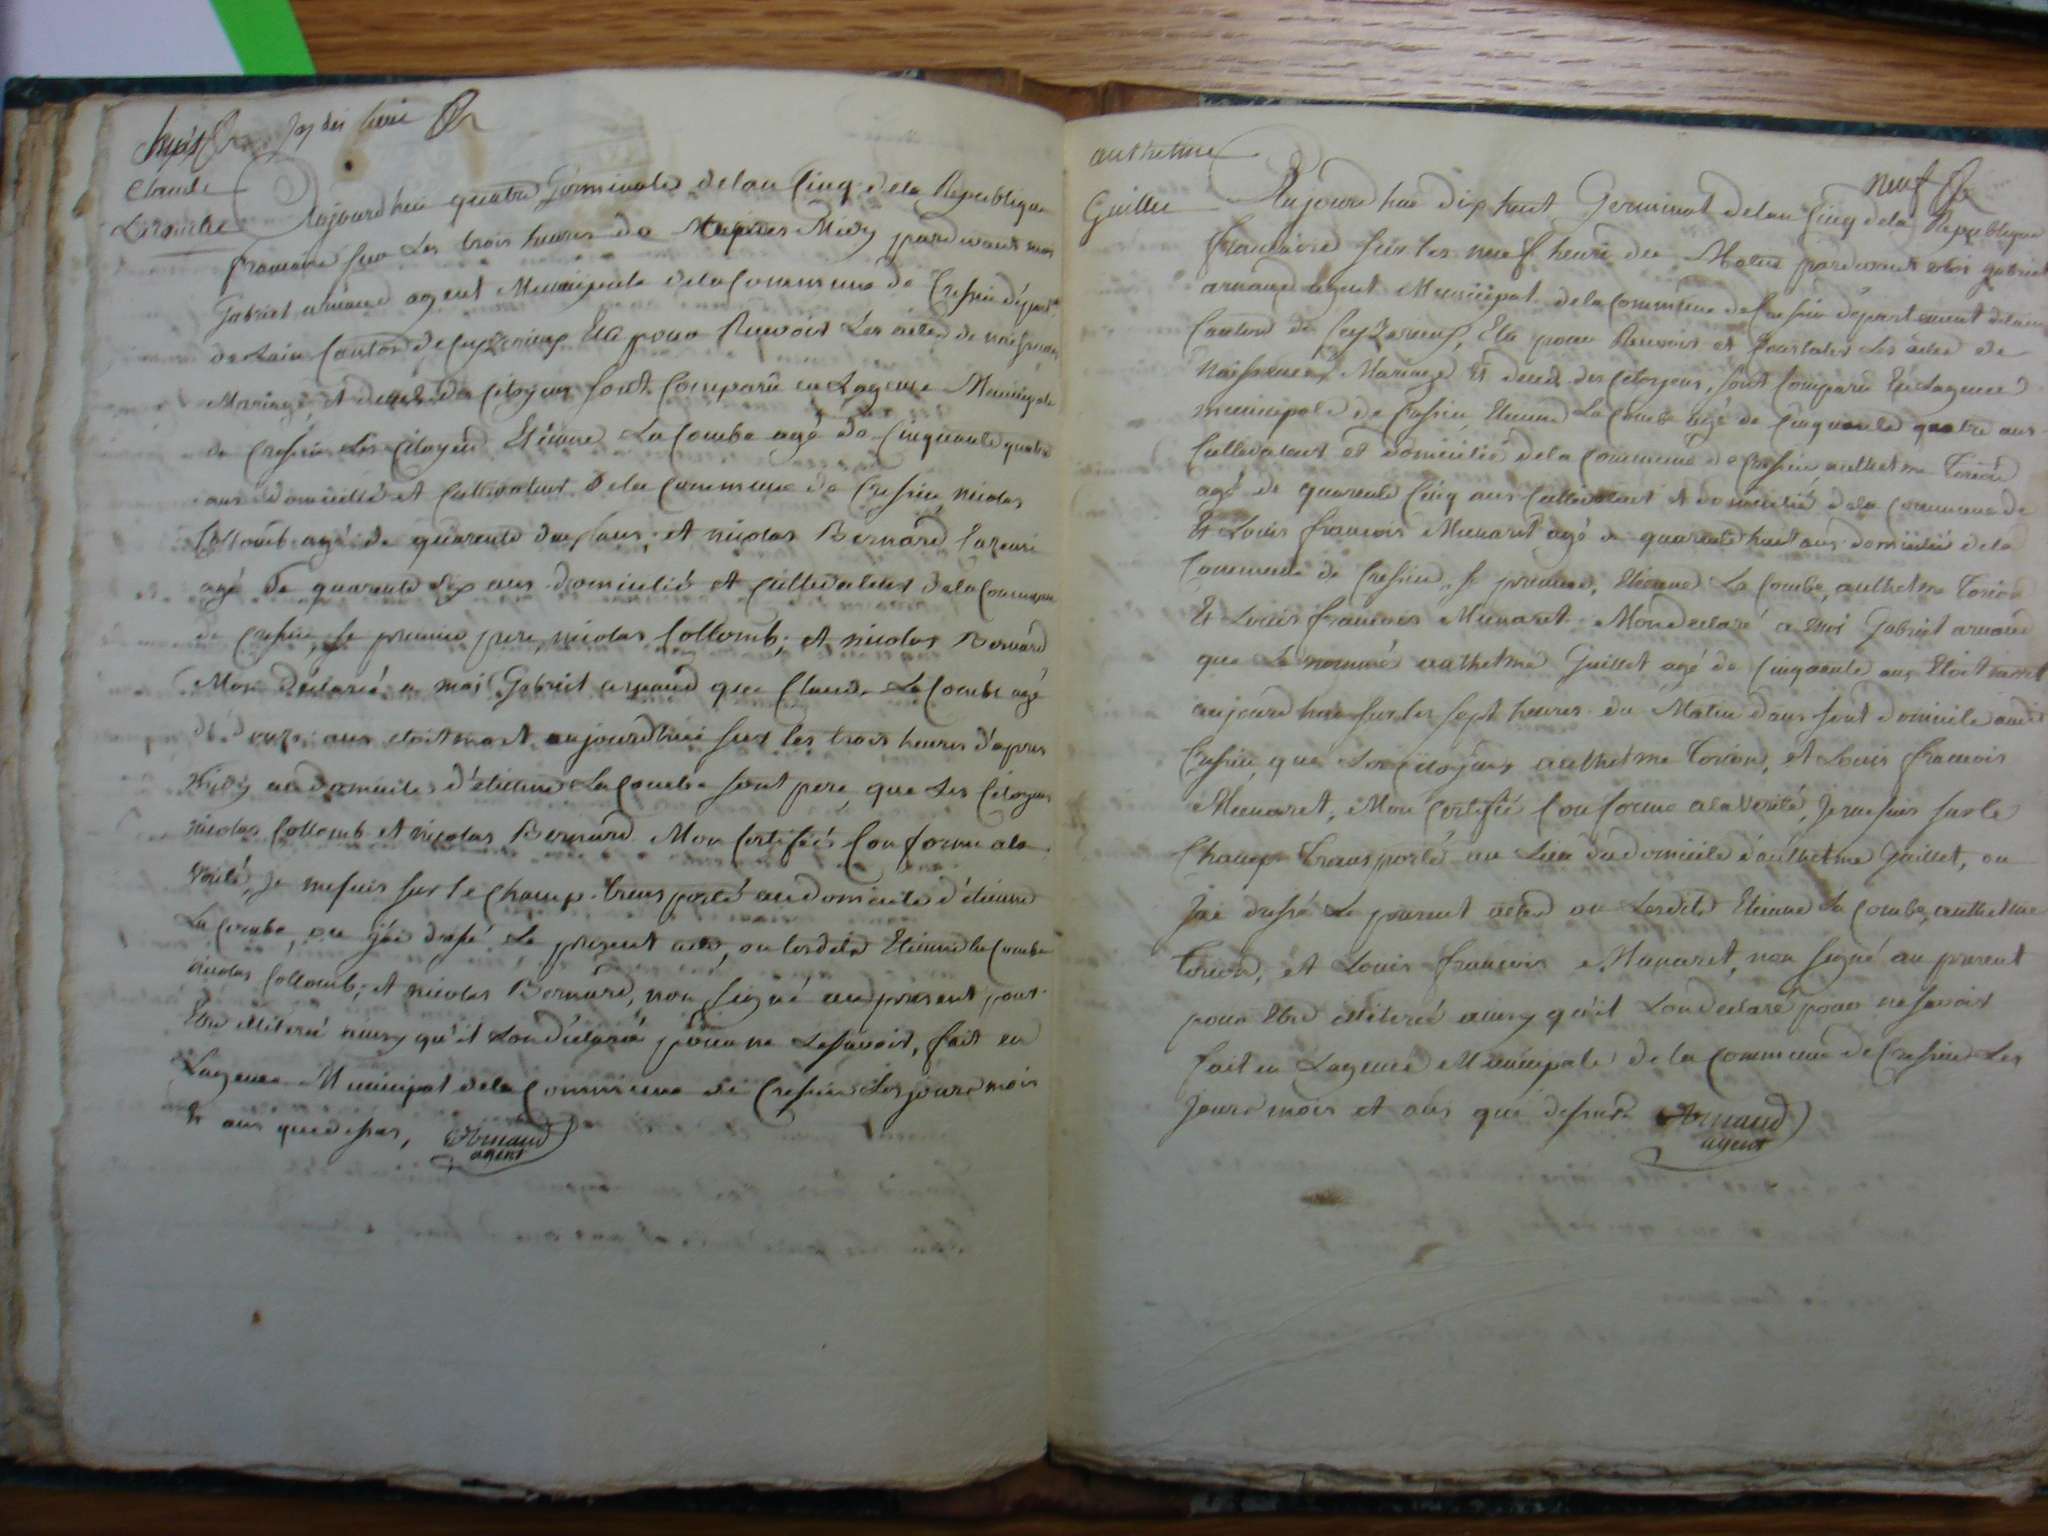 huit
Claude
Lacombe
Aujourdhui quatre Germinale delan Cinq dela Republique
francaise sur Les trois heures de Mapres Midy pardevant moi
Gabriel arnaud agent Municipale dela Commune de Cressieu départ
de Lain Canton de Ceyzerieux Elu pour Recevoir Les actes de naissances
Mariage et décés des Citoyens sont Comparû en Lagence Municipale
de Cressieu Les Citoyens Etienne La Combe agé de Cinquante quatre
ans domicilié et Cultivateur dela Commune de Cressieu nicolas
Collomb agé de quarente deux ans, et nicolas Bernard
agé de quarante six ans domicilié et Cultivateur dela Commune
de Cressieu, Le premier pere, nicolas Collomb, et nicolas Bernard
Mon déclaré a moi Gabriel arnaud que Claude La Combe agé
de douze ans etoit mort aujourdhui sur les trois heures d'apres
Midy au domicile d'étienne La Combe sont pere, que Les Citoyens
nicolas Collomb et nicolas Bernard Mon Certifiés Conforme ala
Verité, Je me suis sur le Champ transporté au domicile d'étienne
La Combe, ou j'ai dressé Le present acte, ou lesdits Etienne la Combe
nicolas Collomb, et nicolas Bernard, non signé au present pour
Etre illiteré ainsy qu'il Lon déclaré pour ne Le savoir, fait en
Lagence Municipal dela Commune de Cressieu Les jour mois
Et ans que dessus, Arnaud
agent
neuf
authelme
Guillet
Aujourdhui dix huit Germinal delan Cinq dela Republique
francaise sur les neuf heure du Matin pardevant moi gabriel
arnaud agent Municipal dela Commune de Cressieu département delain
Canton de Ceyzerieux, Elu pour Recevoir et Constater Les actes de
Naissences, Mariage Et décés des Citoyens, sont Comparû En Lagence
municipale de Cressieu, Etienne La Combe agé de Cinquante quatre ans
Cultivateur et domicilié dela Commune de Cressieu authelme
agé de quarente Cinq ans Cultivateur et domicilié dela Commune de
Et Louis francois Munaret agé de quarante huit ans domicilié dela
Commune de Cressieu, Le premier, Etienne La Combe, authelme
Et Louis francois Munaret Mon declaré a moi Gabriel arnaud
que Le nommé authelme Guillet agé de Cinquante ans Etoit mort
aujourdhui sur les sept heures du Matin dans sont domicile audit
Cressieu, que Les Citoyens authelme, et Louis francois
Munaret, Mon Certifié Conforme ala Verité, Je me suis sur le
Champ transporté au Lieu du domicile d'authelme Guillet, ou
J'ai dressé Le present acte ou Lesdits Etienne La Combe, authelme
et Louis francois Munaret, non signé au present
pour Etre illiteré ainsy qu'il Londeclaré pour ne savoir
fait en Lagence Municipale de la Commune de Cressieu Les
Jour mois et ans que dessus Arnaud
agent